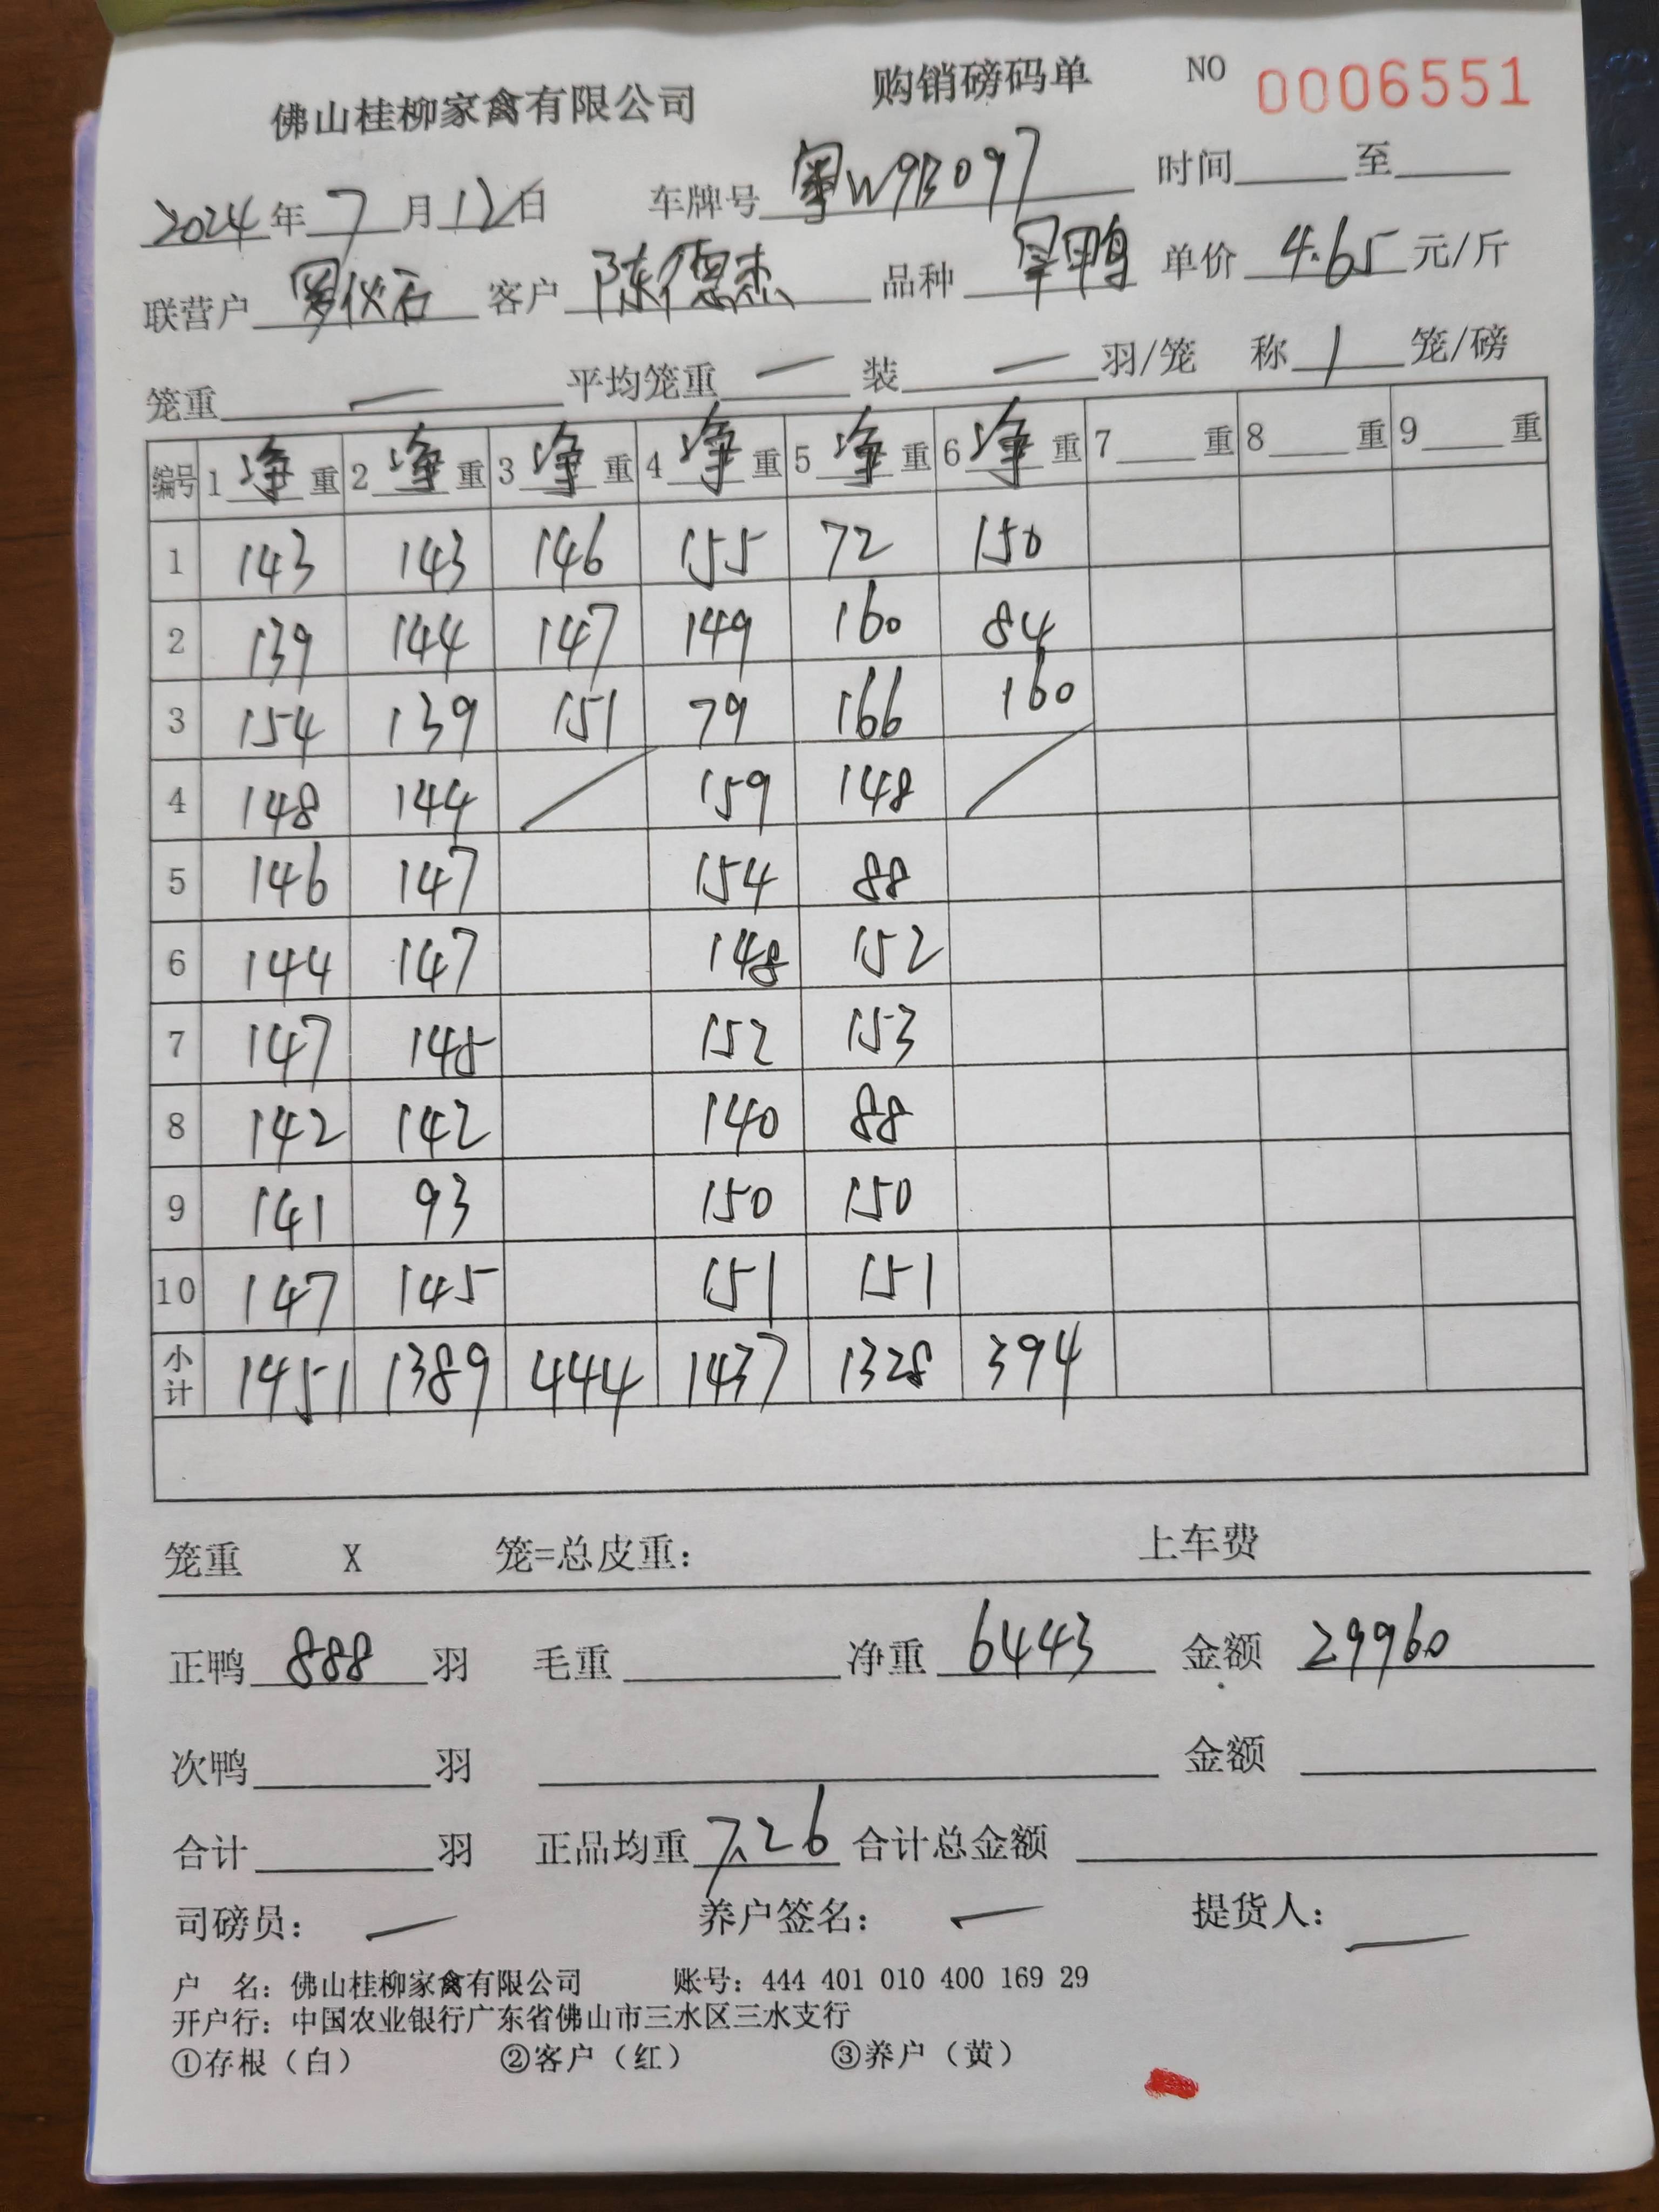 佛山桂柳家禽有限公司 购销磅码单 NO 0006551
2024年7月12日 车牌号粤W9B097 时间 至
联营户罗仪石 客户陈德杰 品种旱鸭 单价4.65元/斤
笼重— 平均笼重— 装—羽/笼 称1笼/磅
编号 1净重 2净重 3净重 4净重 5净重 6净重 7重 8重 9重
1 143 143 146 155 72 150
2 139 144 147 149 160 84
3 154 139 151 79 166 160
4 148 144 / 159 148 /
5 146 147 154 88
6 144 147 148 152
7 147 145 152 153
8 142 142 140 88
9 141 93 150 150
10 147 145 151 151
小计 1451 1389 444 1437 1328 394
笼重 X 笼=总皮重： 上车费
正鸭888羽 毛重 净重6443 金额29960
次鸭 羽 金额
合计 羽 正品均重7.26 合计总金额
司磅员：— 养户签名：— 提货人：—
户 名：佛山桂柳家禽有限公司 账号：444 401 010 400 169 29
开户行：中国农业银行广东省佛山市三水区三水支行
①存根（白） ②客户（红） ③养户（黄）